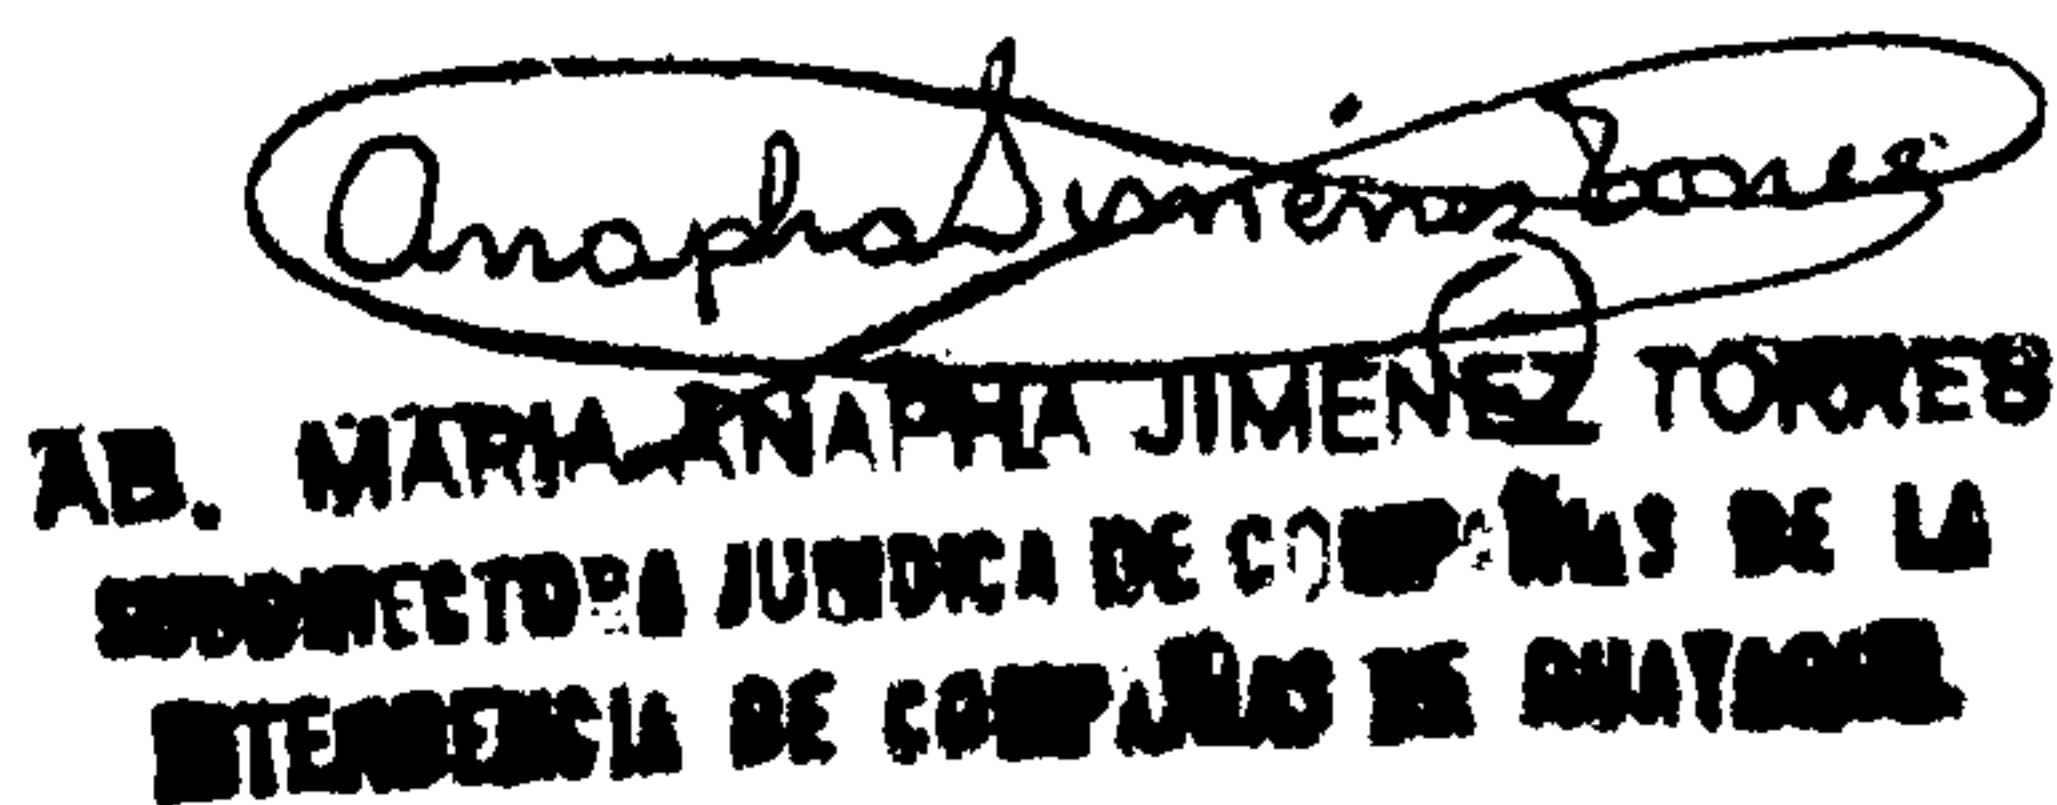 Anapha Jiménez Torres
AB. MARIA ANAPHA JIMENEZ TORRES
SUBDIRECTORA JURIDICA DE COMPAÑIAS DE LA
INTENDENCIA DE COMPAÑIAS DE GUAYAQUIL